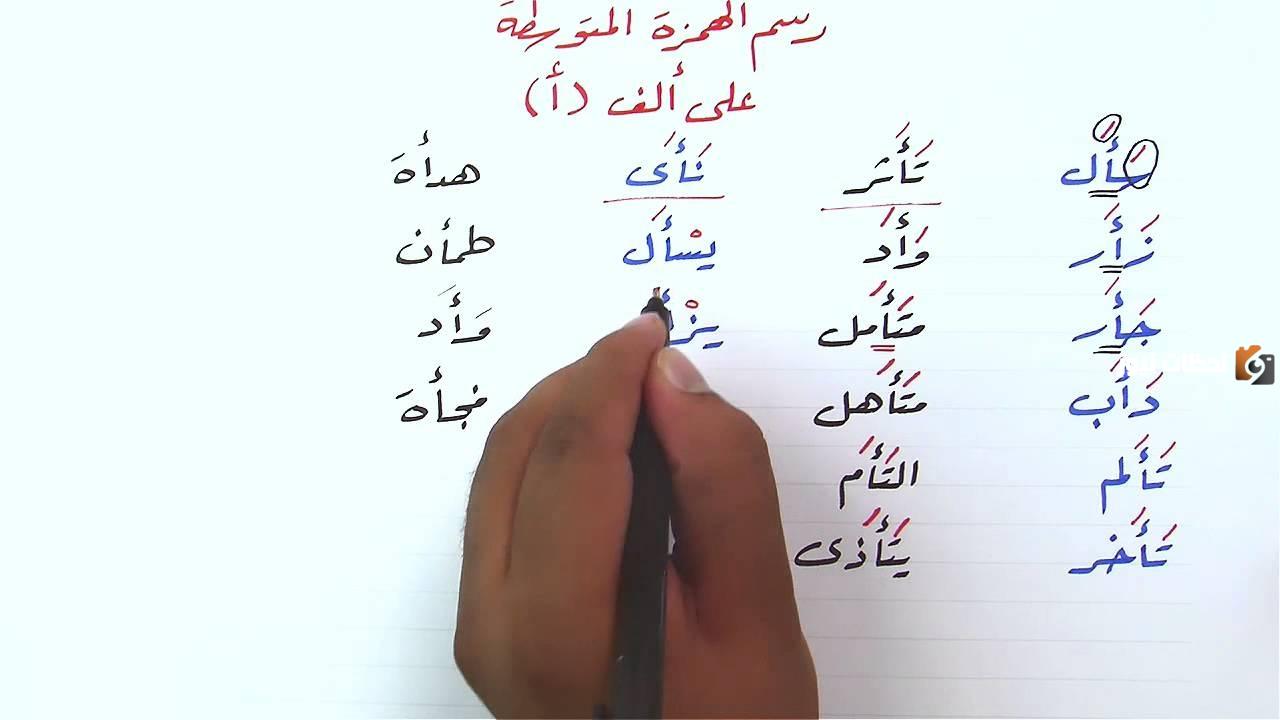 رسم الهمزة المتوسطة
على ألف (أ)
سَأَل تَأَثر نَأَى هدأة
زَأَر وَأَد يسْأَل طمأن
جَأَر متَأَمل يزْأ وَأَد
دَأَب متَأَهل فجأة
تَأَلم التَأَم
تَأَخر يتَأَذى